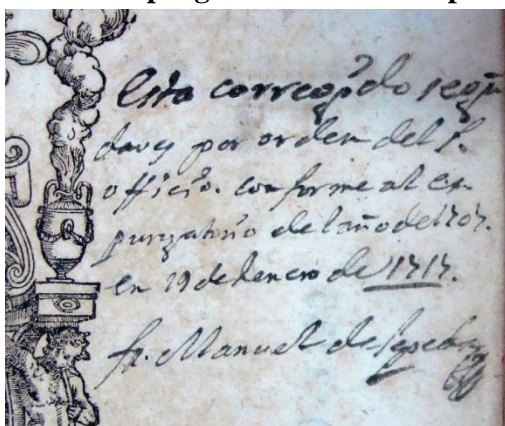 Esta corregido segũ
da vez por orden del S.
officio. conforme al ex-
purgatorio del año de 1707.
en 19 de henero de 1717.
fr. Manuel de